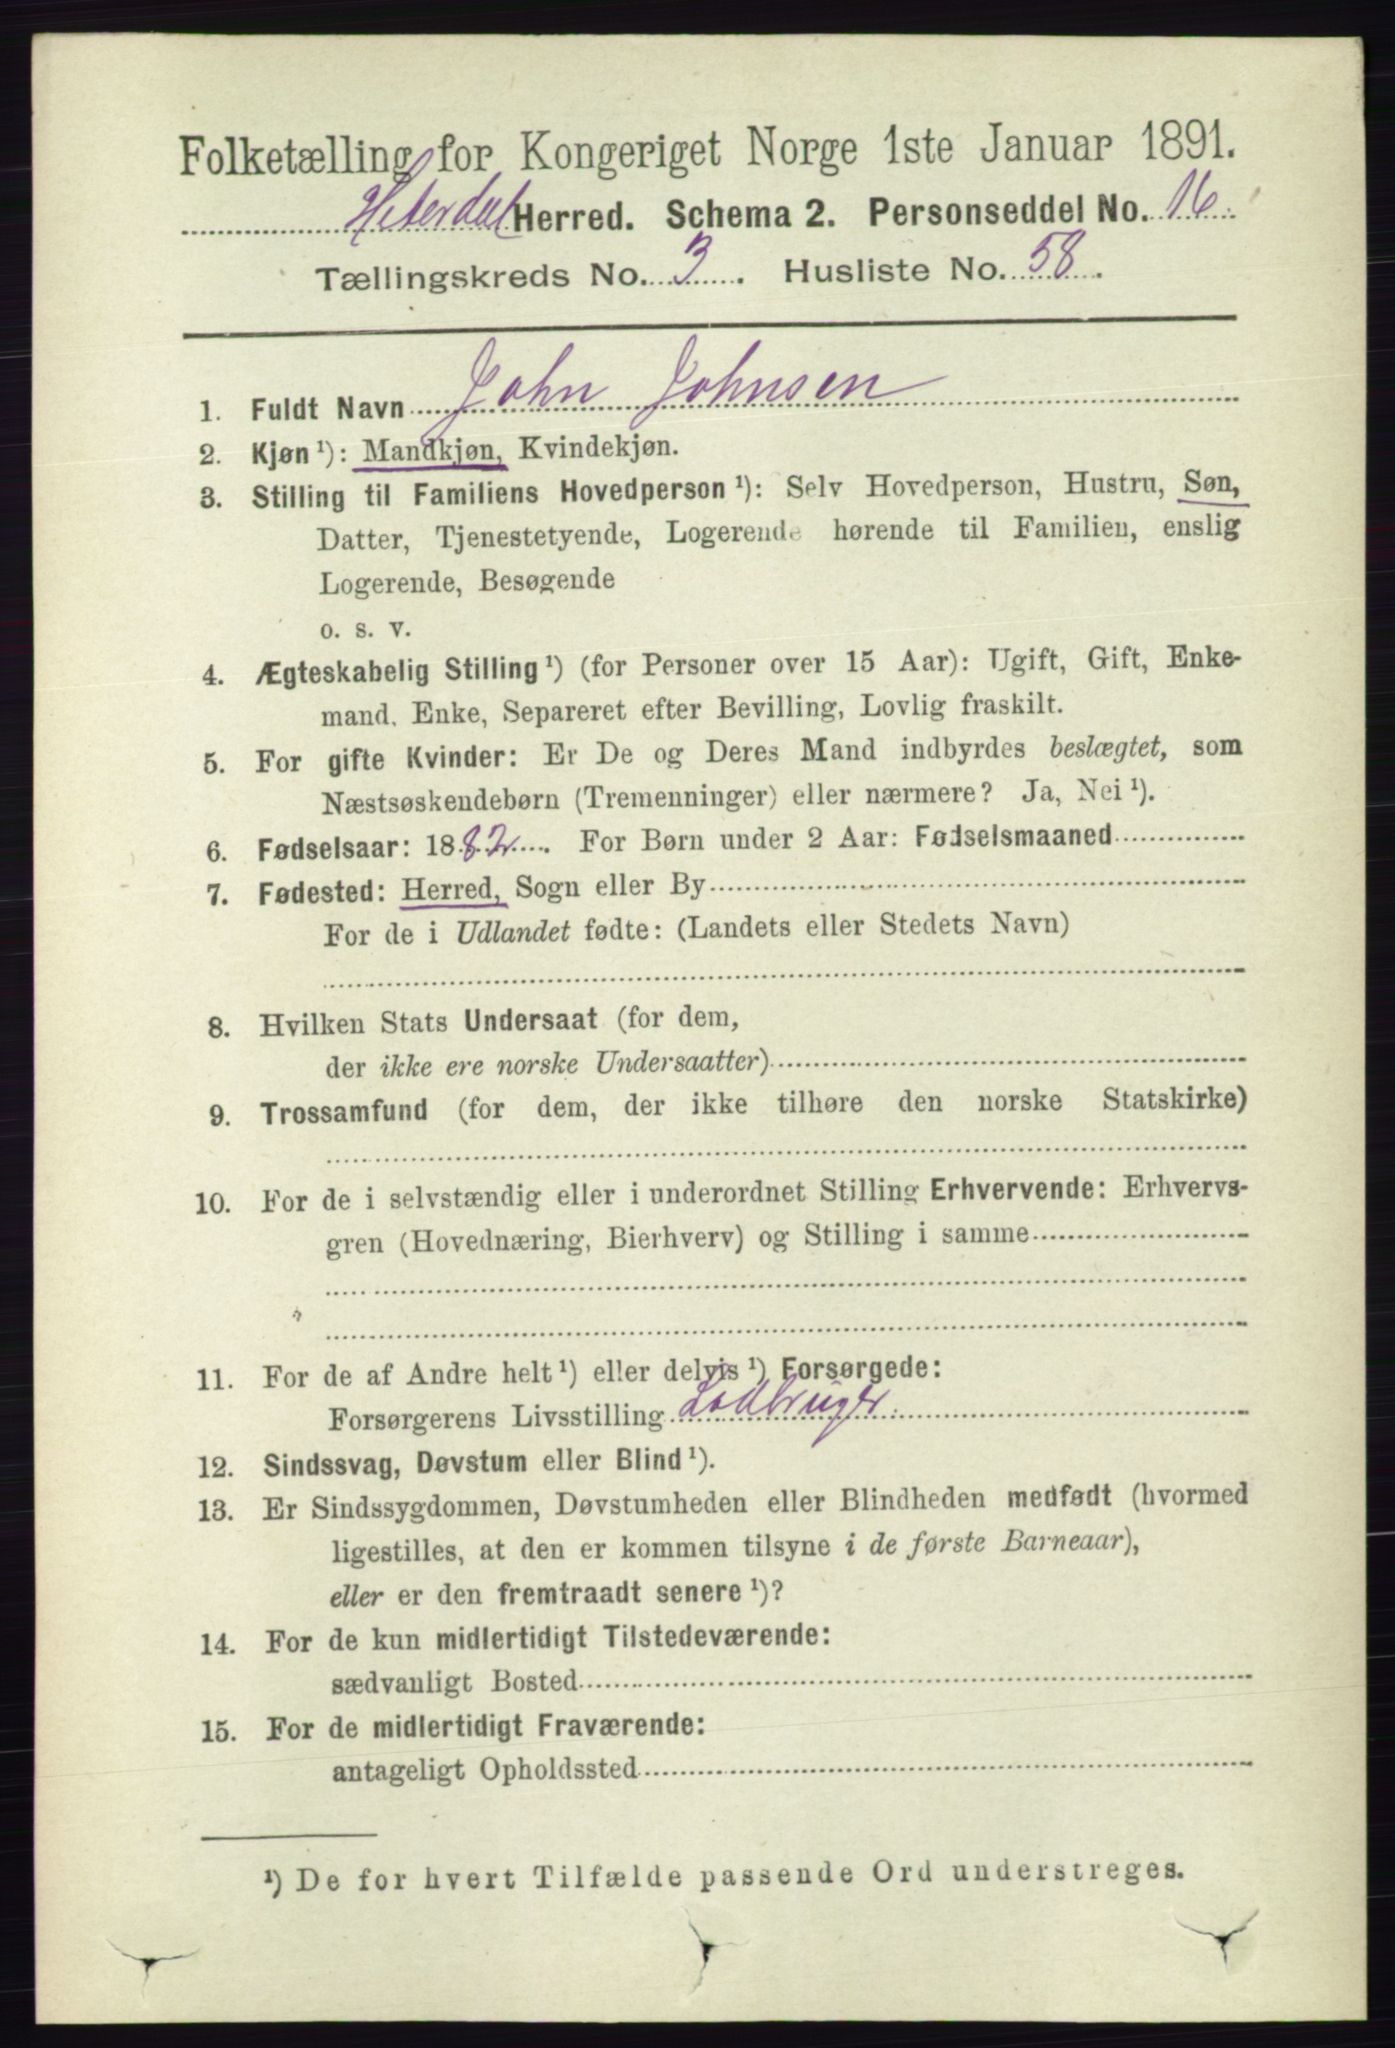 Folketælling for Kongeriget Norge 1ste Januar 1891.
Hiterdal Herred. Schema 2. Personseddel No. 16.
Tællingskreds No. 3. Husliste No. 58.
1. Fuldt Navn John Johnsen
2. Kjøn ¹): Mandkjøn, Kvindekjøn.
3. Stilling til Familiens Hovedperson ¹): Selv Hovedperson, Hustru, Søn,
Datter, Tjenestetyende, Logerende hørende til Familien, enslig
Logerende, Besøgende
o. s. v.
4. Ægteskabelig Stilling ¹) (for Personer over 15 Aar): Ugift, Gift, Enke-
mand, Enke, Separeret efter Bevilling, Lovlig fraskilt.
5. For gifte Kvinder: Er De og Deres Mand indbyrdes beslægtet, som
Næstsøskendebørn (Tremenninger) eller nærmere? Ja, Nei ¹).
6. Fødselsaar: 1882. For Børn under 2 Aar: Fødselsmaaned
7. Fødested: Herred, Sogn eller By
For de i Udlandet fødte: (Landets eller Stedets Navn)
8. Hvilken Stats Undersaat (for dem,
der ikke ere norske Undersaatter)
9. Trossamfund (for dem, der ikke tilhøre den norske Statskirke)
10. For de i selvstændig eller i underordnet Stilling Erhvervende: Erhvervs-
gren (Hovednæring, Bierhverv) og Stilling i samme
11. For de af Andre helt ¹) eller delvis ¹) Forsørgede:
Forsørgerens Livsstilling Lodbruger
12. Sindssvag, Døvstum eller Blind ¹).
13. Er Sindssygdommen, Døvstumheden eller Blindheden medfødt (hvormed
ligestilles, at den er kommen tilsyne i de første Barneaar),
eller er den fremtraadt senere ¹)?
14. For de kun midlertidigt Tilstedeværende:
sædvanligt Bosted
15. For de midlertidigt Fraværende:
antageligt Opholdssted
¹) De for hvert Tilfælde passende Ord understreges.